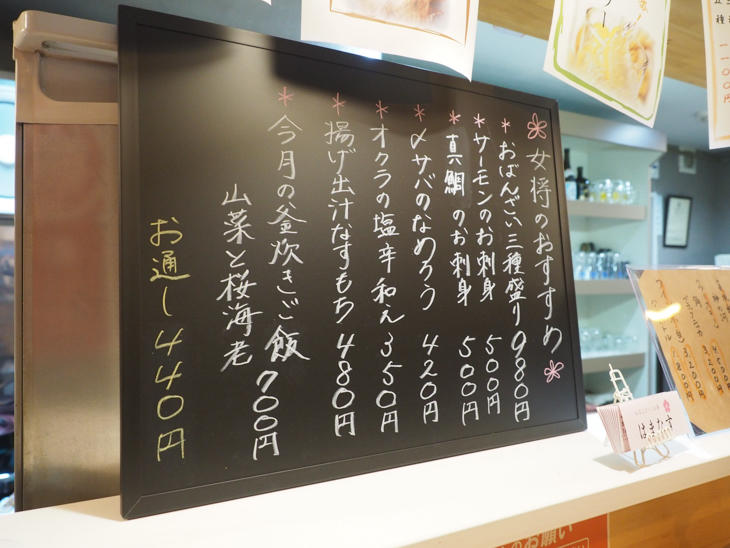 女将のおすすめ
おばんざい三種盛り 980円
サーモンのお刺身 500円
真鯛のお刺身 500円
〆サバのなめろう 420円
オクラの塩辛和え 350円
揚げ出汁なすもち 480円
今月の釜炊きご飯 700円
山菜と桜海老
お通し 440円
はまなす
のお願い